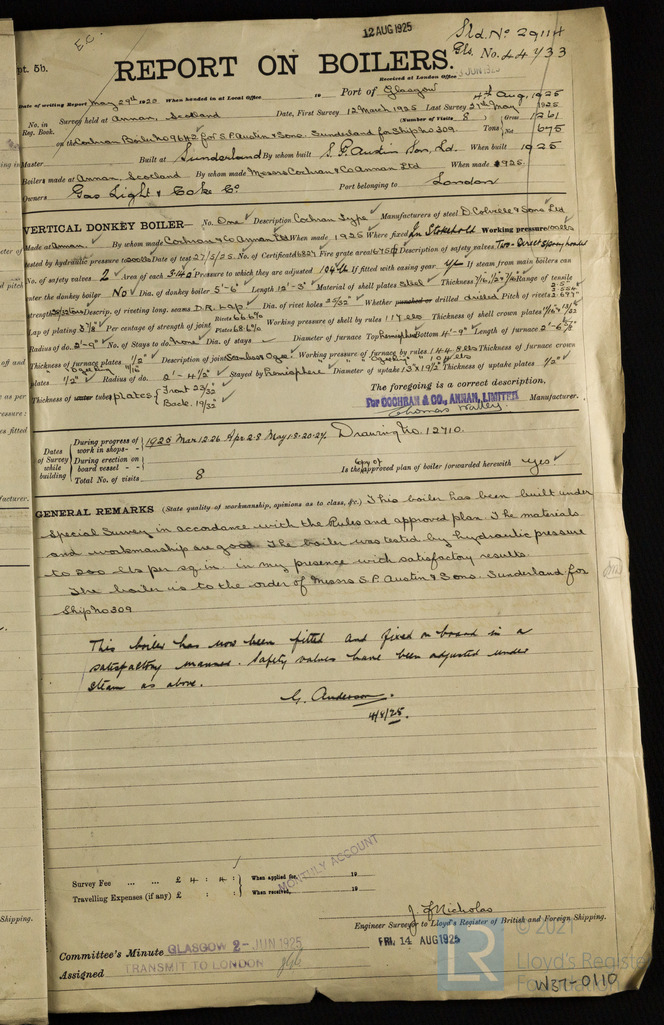 12 AUG 1925
Sld. No 29114
Gls. No. 44733
E.C.
pt. 5b.
REPORT ON BOILERS.
Received at London Office
JUN 1925
Date of writing Report May 29th 1925 When handed in at Local Office 19 Port of Glasgow
4th Aug, 1925
No. in Reg. Book.
Survey held at Annan, Scotland Date, First Survey 12 March 1925 Last Survey 27th May 1925
(Number of Visits 8)
on the Cochran Boiler No 9642 for S.P. Austin & Sons. Sunderland for Ship No 309. Tons Gross 1261 Net 675
Master Built at Sunderland By whom built S.P. Austin Son, Ld. When built 1925
Boilers made at Annan, Scotland By whom made Messrs Cochran & Co Annan Ltd When made 1925.
Owners Gas Light & Coke Co. Port belonging to London
VERTICAL DONKEY BOILER— No. One Description Cochran Type Manufacturers of steel D. Colville & Sons Ltd
Made at Annan. By whom made Cochran & Co Annan Ltd When made 1925 Where fixed In Stokehold Working pressure 100 lbs
tested by hydraulic pressure to 200 lbs Date of test 27/5/25. No. of Certificate 16827 Fire grate area Description of safety valves Two - Direct Spring loaded
No. of safety valves 2 Area of each Pressure to which they are adjusted 104 lb If fitted with easing gear If steam from main boilers can
enter the donkey boiler No Dia. of donkey boiler 5'-6" Length 12'-3" Material of shell plates Steel Thickness Range of tensile
strength Descrip. of riveting long. seams D.R. Lap Dia. of rivet holes 25/32" Whether punched or drilled drilled Pitch of rivets
Lap of plating 3 7/8" Per centage of strength of joint Rivets 66.6% Plates 68.6% Working pressure of shell by rules 117 lbs Thickness of shell crown plates
Radius of do. 2'-9" No. of Stays to do. None Dia. of stays Diameter of furnace Top Hemisphere Bottom 4'-9" Length of furnace
Thickness of furnace plates 1/2" Description of joint Seamless Ogee Working pressure of furnace by rules 148 lbs Thickness of furnace crown
plates 1/2" Radius of do. 2'-4 1/2" Stayed by Hemisphere Diameter of uptake 13" x 19 1/2" Thickness of uptake plates 1/2"
Thickness of water tubes plates Front 23/32" Back 19/32"
The foregoing is a correct description.
For COCHRAN & CO., ANNAN, LIMITED Manufacturer.
Dates of Survey while building
During progress of work in shops - - 1925 Mar. 12. 26. Apr. 2. 8. May 1. 8. 20. 27. Drawing No. 12710.
During erection on board vessel - - -
Total No. of visits 8 Is the copy of approved plan of boiler forwarded herewith Yes
GENERAL REMARKS (State quality of workmanship, opinions as to class, &c.) This boiler has been built under
Special Survey in accordance with the Rules and approved plan. The materials
and workmanship are good. The boiler was tested by hydraulic pressure
to 200 lbs per sq. in. in my presence with satisfactory results.
The boiler is to the order of Messrs S.P. Austin & Sons. Sunderland for
Ship No 309
This boiler has now been fitted and fixed on board in a
satisfactory manner. Safety valves have been adjusted under
steam as above.
G. Anderson.
4/8/25.
Survey Fee ... ... £ 4 : 4 : When applied for, 19
Travelling Expenses (if any) £ : : When received, 19
MONTHLY ACCOUNT
J. F. Nicholas
Engineer Surveyor to Lloyd's Register of British and Foreign Shipping.
Committee's Minute GLASGOW 2 - JUN 1925
FRI. 14 AUG 1925
Assigned TRANSMIT TO LONDON
Shipping.
LR
© 2021
Lloyd's Register
Foundation
W37-0110